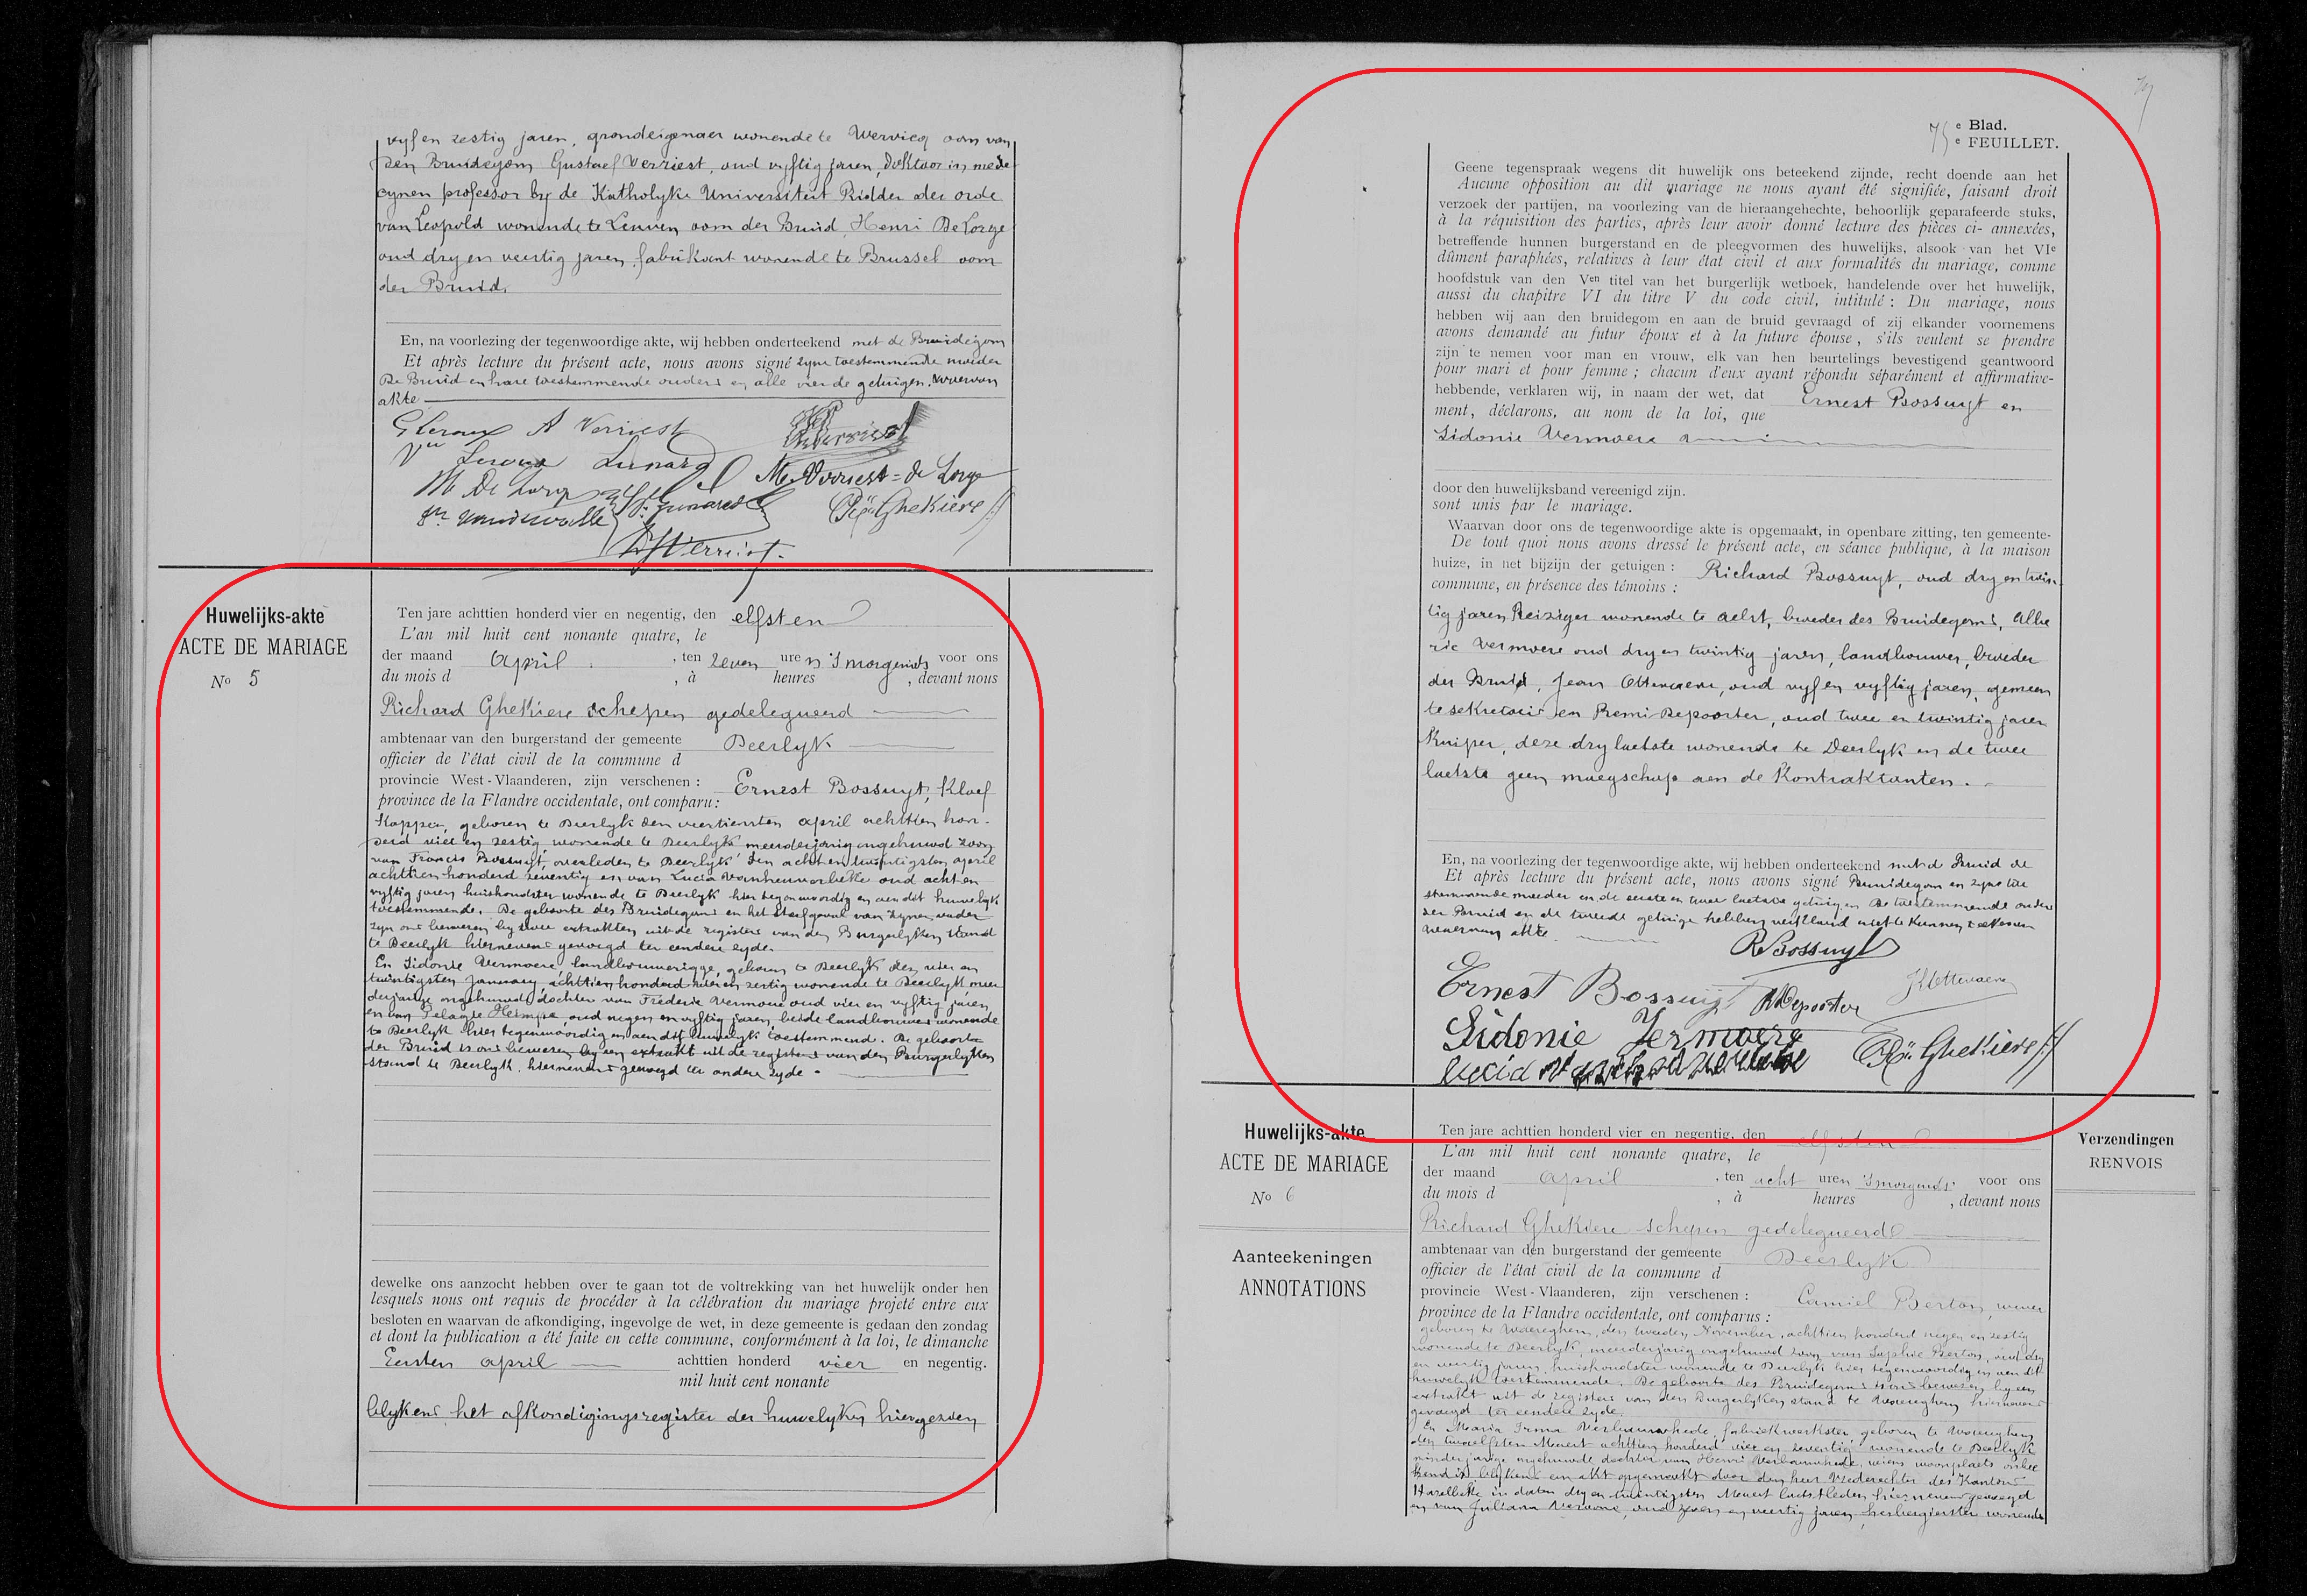 vyf en zestig jaren, grondeigenaer wonende te Wervicq oom van
den Bruidegom Gustaef Verriest, oud vyftig jaren, Doktoor in mede-
cynen professor by de Katholyke Universiteit Ridder der orde
van Leopold wonende te Leuven oom der Bruid, Henri De Lorge
oud dry en veertig jaren, fabrikant wonende te Brussel oom
der Bruid.
En, na voorlezing der tegenwoordige akte, wij hebben onderteekend met de Bruidegom
Et après lecture du présent acte, nous avons signé zyne toestemmende moeder
De Bruid en hare toestemmende ouders en alle vier de getuigen. Waervan
akte
A Verriest
M. Verriest = de Lorge
M De Lorge
Ghekiere
Verriest
Huwelijks-akte
ACTE DE MARIAGE
No 5
Ten jare achttien honderd vier en negentig, den elfsten
L'an mil huit cent nonante quatre, le
der maand April , ten zeven ure n 's morgends voor ons
du mois d , à heures , devant nous
Richard Ghekiere schepen gedelegueerd
ambtenaar van den burgerstand der gemeente Deerlyk
officier de l'état civil de la commune d
provincie West-Vlaanderen, zijn verschenen : Ernest Bossuyt, Kloef
province de la Flandre occidentale, ont comparu :
Kapper, geboren te Deerlyk den veertiensten april achttien hon-
derd vier en zestig wonende te Deerlyk meerderjarig ongehuwd zoon
van Francis Bossuyt, overleden te Deerlyk den acht en twintigsten april
achttien honderd zeventig en van Lucia Vanheuverbeke oud acht en
vyftig jaren huishoudster wonende te Deerlyk hier tegenwoordig en aen dit huwelyk
toestemmende. De geboorte des Bruidegoms en het sterfgeval van zynen vader
zyn ons bewezen by twee extrakten uit de registers van den Burgerlyken stand
te Deerlyk hiernevens gevoegd ter eendere zyde.
En Sidonie Vermoere landbouwerigge, geboren te Deerlyk den vier en
twintigsten January achttien honderd vier en zestig wonende te Deerlyk meer
derjarige ongehuwde dochter van Frederic Vermoere oud vier en vyftig jaren
en van Pelagie oud negen en vyftig jaren, beide landbouwers wonende
te Deerlyk hier tegenwoordig en aen dit huwelyk toestemmend. De geboorte
der Bruid is ons bewezen by een extrakt uit de registers van den Burgerlyken
stand te Deerlyk, hiernevens gevoegd ter andere zyde.
dewelke ons aanzocht hebben over te gaan tot de voltrekking van het huwelijk onder hen
lesquels nous ont requis de procéder à la célébration du mariage projeté entre eux
besloten en waarvan de afkondiging, ingevolge de wet, in deze gemeente is gedaan den zondag
et dont la publication a été faite en cette commune, conformément à la loi, le dimanche
Eersten april achttien honderd vier en negentig.
mil huit cent nonante
blykens het afkondigingsregister der huwelyken hiergezien
75e Blad.
e FEUILLET.
Geene tegenspraak wegens dit huwelijk ons beteekend zijnde, recht doende aan het
Aucune opposition au dit mariage ne nous ayant été signifiée, faisant droit
verzoek der partijen, na voorlezing van de hieraangehechte, behoorlijk geparafeerde stuks,
à la réquisition des parties, après leur avoir donné lecture des pièces ci- annexées,
betreffende hunnen burgerstand en de pleegvormen des huwelijks, alsook van het VIe
dûment paraphées, relatives à leur état civil et aux formalités du mariage, comme
hoofdstuk van den Ven titel van het burgerlijk wetboek, handelende over het huwelijk,
aussi du chapitre VI du titre V du code civil, intitulé : Du mariage, nous
hebben wij aan den bruidegom en aan de bruid gevraagd of zij elkander voornemens
avons demandé au futur époux et à la future épouse, s'ils veulent se prendre
zijn te nemen voor man en vrouw, elk van hen beurtelings bevestigend geantwoord
pour mari et pour femme ; chacun d'eux ayant répondu séparément et affirmative-
hebbende, verklaren wij, in naam der wet, dat Ernest Bossuyt en
ment, déclarons, au nom de la loi, que
Sidonie Vermoere
door den huwelijksband vereenigd zijn.
sont unis par le mariage.
Waarvan door ons de tegenwoordige akte is opgemaakt, in openbare zitting, ten gemeente-
De tout quoi nous avons dressé le présent acte, en séance publique, à la maison
huize, in het bijzijn der getuigen : Richard Bossuyt, oud dry en twin-
commune, en présence des témoins :
tig jaren Reiziger wonende te Aelst, broeder des Bruidegoms, Albe
ric Vermoere oud dry en twintig jaren, landbouwer, broeder
der Bruid, Jean Ottevaere, oud vyf en vyftig jaren, gemeen
te sekretaris en Remi Depoorter, oud twee en twintig jaren
Kuiper, deze dry laetste wonende te Deerlyk en de twee
laetste geen maegschap aen de Kontraktanten.
En, na voorlezing der tegenwoordige akte, wij hebben onderteekend met de Bruid de
Et après lecture du présent acte, nous avons signé Bruidegom en zyne toe
stemmende moeder en de eerste en twee laetste getuigen De toestemmende ouders
der Bruid en de tweede getuige hebben verklaard niet te kunnen teekenen
waervan akte.
R Bossuyt
Ernest Bossuyt
R Depoorter
Ottevaere
Sidonie Vermoere
Ghekiere
Huwelijks-akte
ACTE DE MARIAGE
No 6
Aanteekeningen
ANNOTATIONS
Ten jare achttien honderd vier en negentig, den elfsten
L'an mil huit cent nonante quatre, le
der maand April , ten acht uren 's morgends voor ons
du mois d , à heures , devant nous
Richard Ghekiere schepen gedelegueerd
ambtenaar van den burgerstand der gemeente Deerlyk
officier de l'état civil de la commune d
provincie West-Vlaanderen, zijn verschenen : Camiel Berton, wever
province de la Flandre occidentale, ont comparus :
geboren te Waereghem, den tweeden November, achttien honderd negen en zestig
wonende te Deerlyk, meerderjarig ongehuwd zoon van Sophie Berton, oud dry
en veertig jaren, huishoudster wonende te Deerlyk hier tegenwoordig en aen dit
huwelyk toestemmende. De geboorte des Bruidegoms is ons bewezen by een
extrakt uit de registers van den Burgerlyken stand te Waereghem hiernevens
gevoegd ter eendere zyde.
En Maria Irma fabriekwerkster, geboren te Waereghem
den twaelfsten Meert achttien honderd vier en zeventig wonende te Deerlyk
minderjarige ongehuwde dochter van Henri wiens woonplaets onbe
kend is blykens een akt opgemaekt door den heer Vrederechter des Kantons
Harelbeke in daten dry en twintigsten Meert laetstleden hiernevens gevoegd
en van Juliana oud zeven en veertig jaren, herbergierster wonende
Verzendingen
RENVOIS